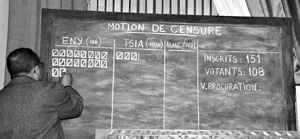 MOTION DE CENSURE
ENY (OUI) TSIA (NON) BLANC/NUL
INSCRITS : 151
VOTANTS: 108
V.PROCURATION.